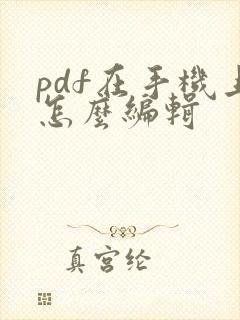 pdf在手機上
怎麼編輯
真宫纶